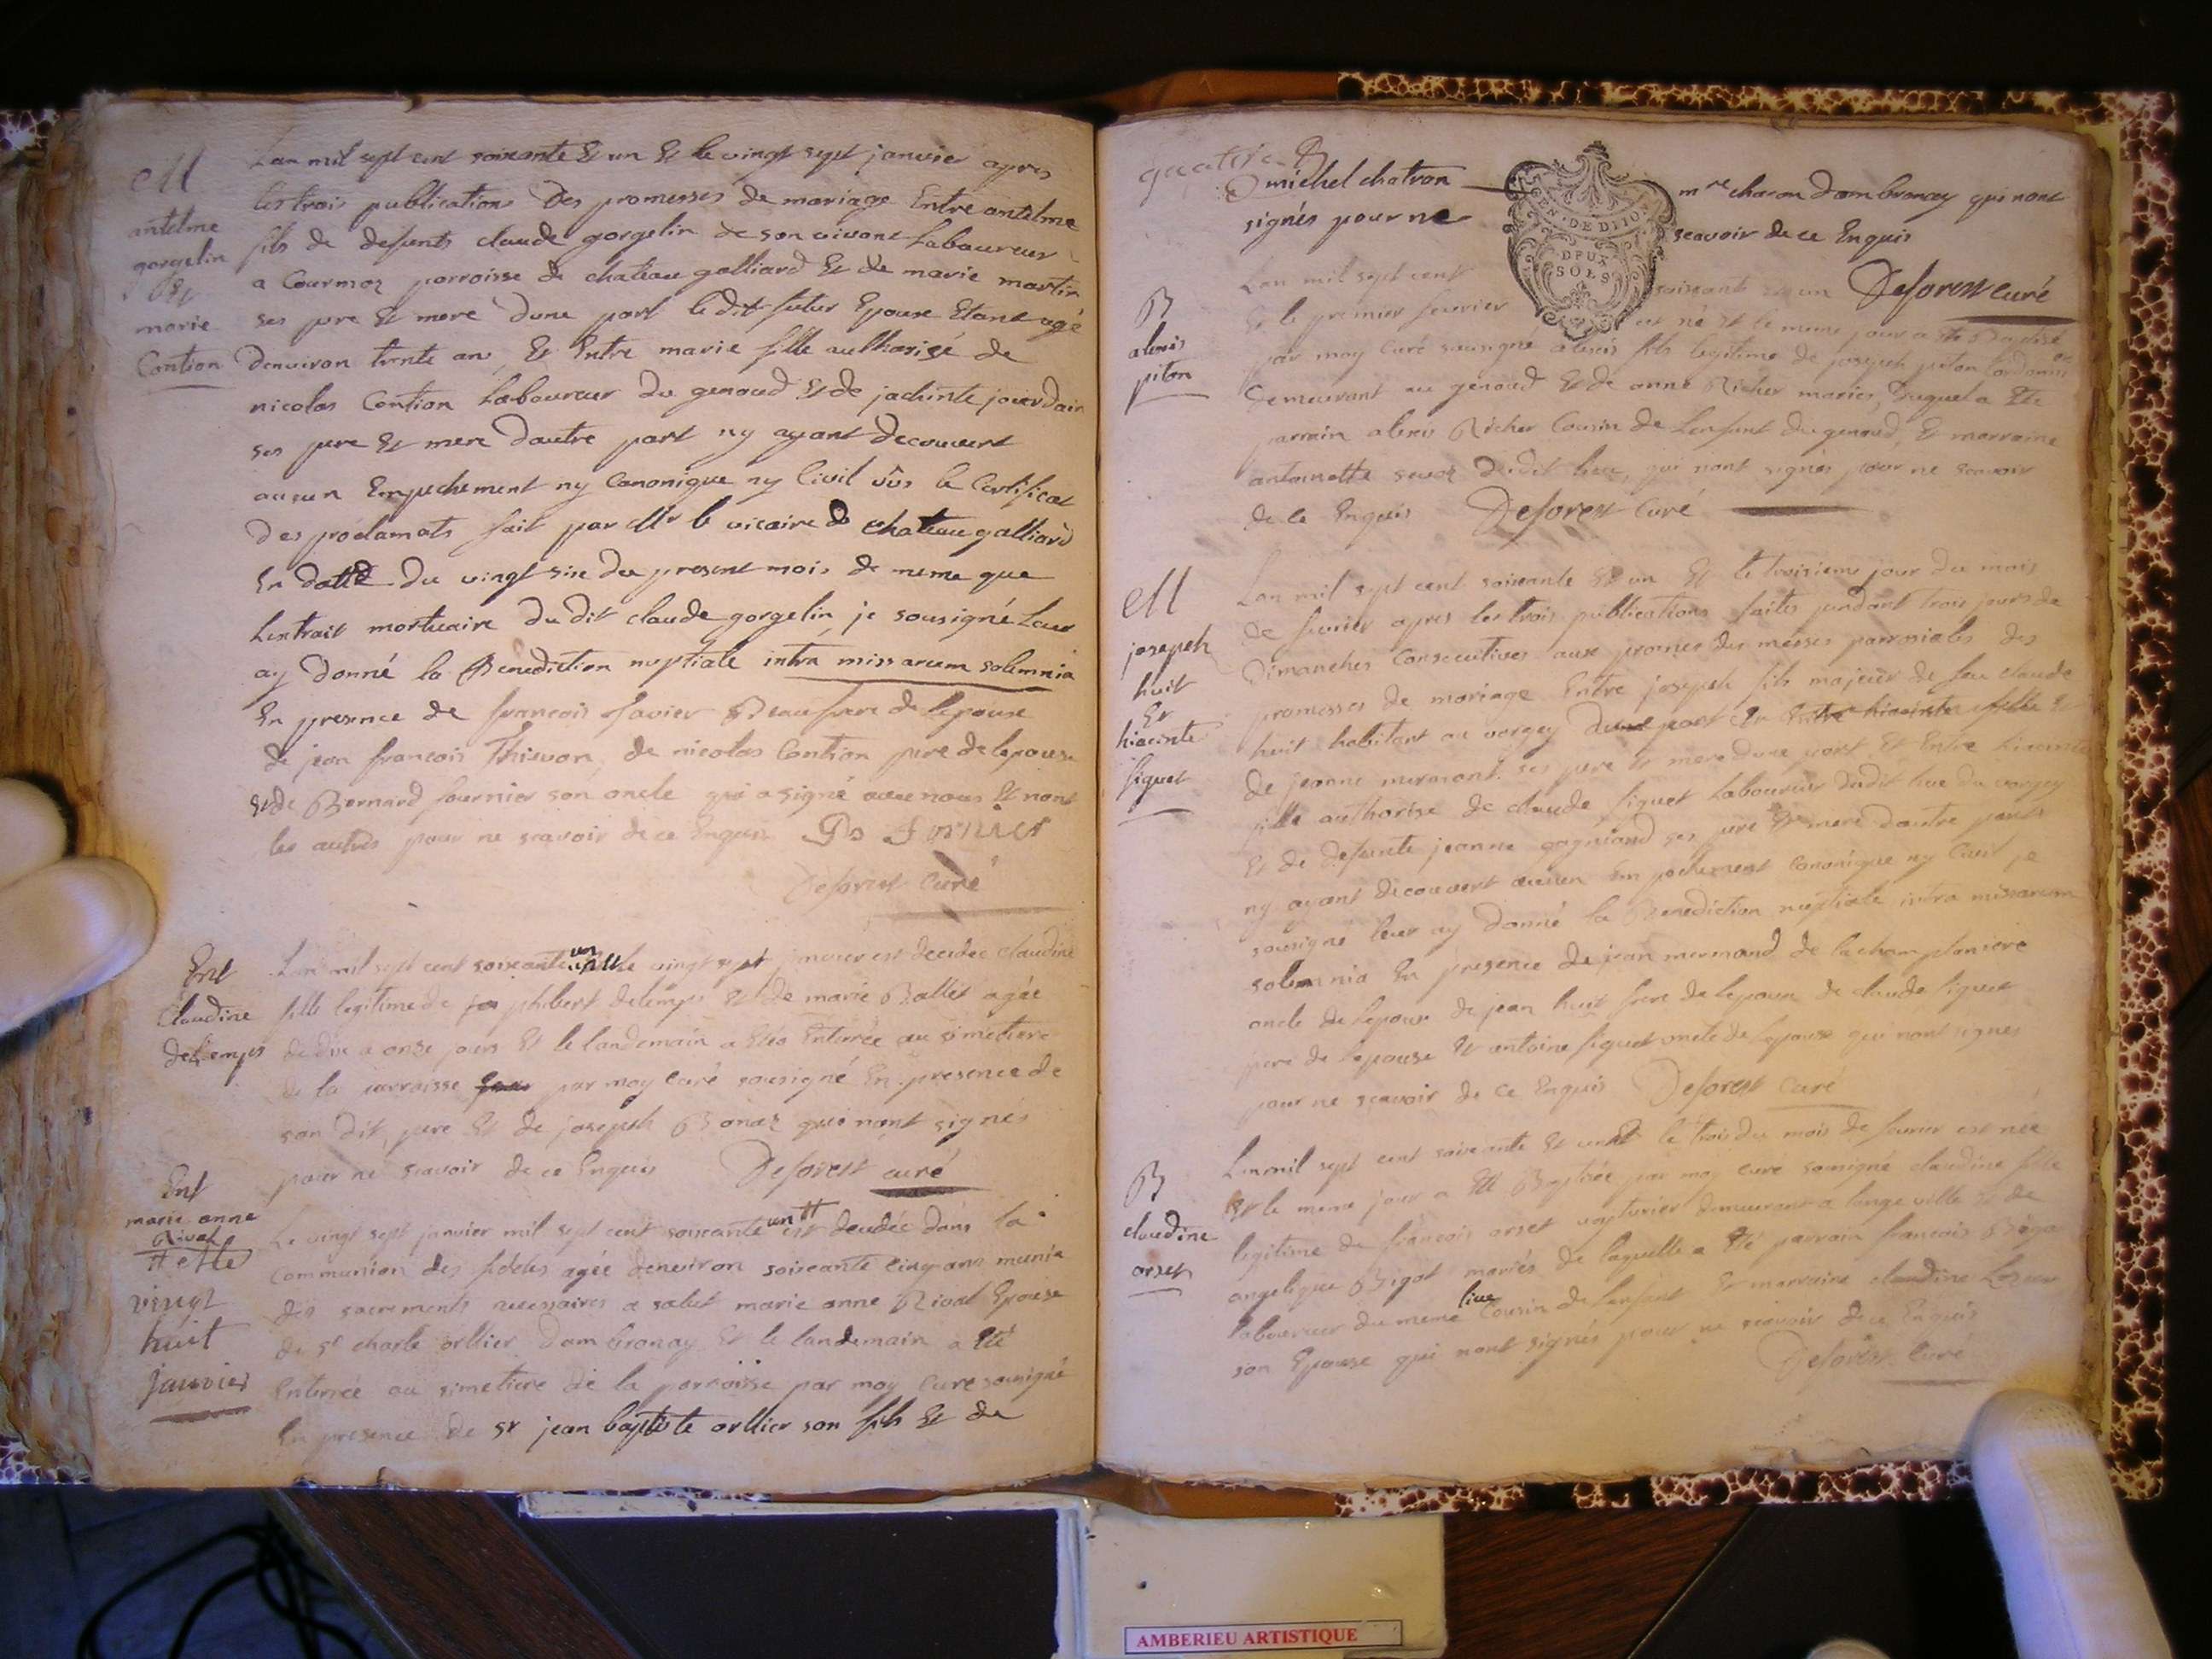 M
antelme
gorgelin
Et
marie
Contion
Lan mil sept cent soixante Et un Et le vingt sept janvier apres
les trois publications des promesses de mariage Entre antelme
fils de defunts claude gorgelin de son vivant Laboureur
a Cour parroisse de chateau galliard Et de marie martin
ses pere Et mere dune part le dit futur Epoux Etant agé
denviron trente ans Et Entre marie fille authorisée de
nicolas Contion Laboureur du genoud Et de jachinte jourdain
ses pere Et mere dautre part ny ayant decouvert
aucun Empechement ny Canonique ny Civil vûs le Certificat
des proclamats fait par Mr le vicaire de chateau galliard
En datte du vingt six du present mois de meme que
Lextrait mortuaire du dit claude gorgelin je sousigné Leur
ay donné la Benediction nuptiale intra missarum solemnia
En presence de francois favier Beaufrere de lepouse
de jean francois Thievon, de nicolas Contion pere de lepouse
et de Bernard fournier son oncle qui a signé avec nous Et nont
les autres pour ne scavoir de ce Enquis Bs Fornier
Deforest Curé
Ent
Claudine
delemps
Lan mil sept cent soixante un et le vingt sept janvier est decedee claudine
fille legitime de philibert delemps Et de marie Ballet agée
de dix a onse jours Et le landemain a Etée Enterrée au simetiere
de la parroisse par moy curé sousigné En presence de
son dit pere Et de joseph Bonaz qui nont signés
pour ne scavoir de ce Enquis Deforest curé
Ent
marie anne
Rival
tt elle
vingt
huit
janvier
Le vingt sept janvier mil sept cent soixante un tt est decedée dans la
Communion des fideles agée denviron soixante cinq ans munie
des sacrements necessaires a salut marie anne Rival Epouse
de sr charle orllier dambronay Et le landemain a Eté
Enterrée au simetiere de la parroisse par moy curé sousigné
En presence de sr jean baptiste orllier son fils Et de
quatrie
michel chatron mre charon dambronay qui nont
signés pour ne scavoir de ce Enquis
Deforest curé
GEN. DE DIJON
DEUX
SOLS
B
alexis
piton
Lan mil sept cent soixante et un
Et le premier fevrier est né Et le meme jour a Eté Baptisé
par moy Curé sousigné alexis fils legitime de joseph piton Cordonnier
demeurant au genoud Et de anne Richer mariés, duquel a Eté
parrain alexis Richer Cousin de Lenfant du genoud, Et marraine
antoinette dudit lieu, qui nont signés pour ne scavoir
de ce Enquis Deforest Curé
M
joseph
huit
Et
hiacinte
figuet
Lan mil sept cent soixante Et un Et le troisieme jour du mois
de fevrier apres les trois publications faites pendant trois jours de
Dimanches Consecutives aux prones des messes parroniales des
promesses de mariage Entre joseph fils majeur de feu claude
huit habitant au vorgey dune part Et Entre hiacinte fille Et
de jeanne mermont ses pere Et mere dune part Et Entre hiacinte
fille authorise de claude figuet Laboureur dudit lieu du vorgey
Et de defunte jeanne gagniand ses pere Et mere dautre part
ny ayant decouvert aucun Empechement Canonique ny Civil je
sousigné leur ay donné la Benediction nuptiale intra missarum
solemnia En presence de jean mermand de la champlaniere
oncle de lepoux de jean huit frere de lepoux de claude figuet
pere de lepouse Et antoine figuet oncle de lepouse qui nont signes
pour ne scavoir de ce Enquis Deforest curé
B
claudine
orset
Lan mil sept cent soixante Et un Et le trois du mois de fevrier est née
Et le meme jour a Eté Baptisée par moy curé sousigné claudine fille
legitime de francois orset voyturier demeurant a longe ville Et de
angelique Bigot mariés de laquelle a Eté parrain francois Bigot
laboureur du meme lieu Cousin de lenfant Et marraine claudine
son Epouse qui nont signés pour ne scavoir de ce Enquis
Deforest Curé
AMBERIEU ARTISTIQUE